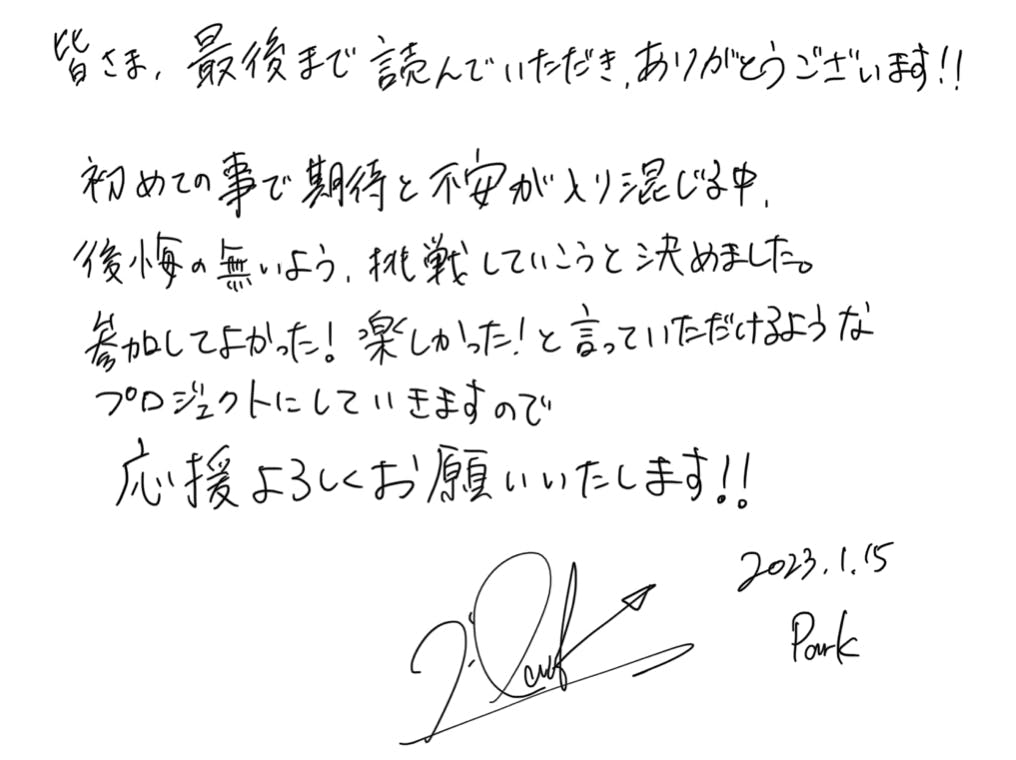 皆さま、最後まで読んでいただき、ありがとうございます!!
初めての事で期待と不安が入り混じる中、
後悔の無いよう、挑戦していこうと決めました。
参加してよかった!楽しかった!と言っていただけるような
プロジェクトにしていきますので
応援よろしくお願いいたします!!
2023.1.15
Park